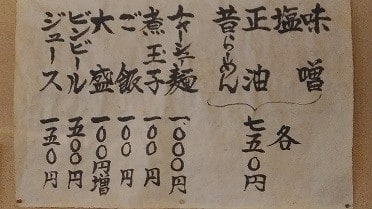 味噌
塩
正油
昔らーめん
各七五〇円
チャーシュー麺 一、〇〇〇円
煮玉子 一〇〇円
ご飯 一〇〇円
大盛 一〇〇円増
ビンビール 五〇〇円
ジュース 一五〇円